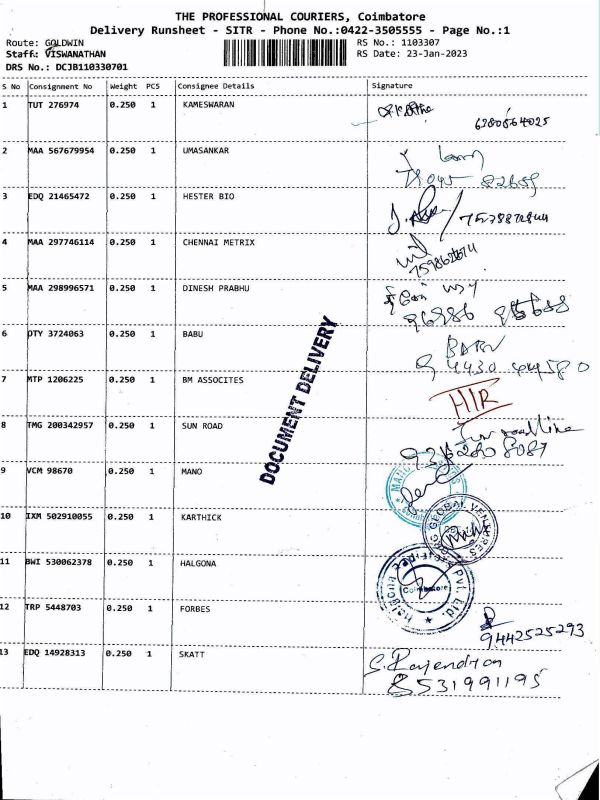 THE PROFESSIONAL COURIERS, Coimbatore
Delivery Runsheet - SITR - Phone No.:0422-3505555 - Page No.:1
Route: GOLDWIN RS No.: 1103307
Staff: VISWANATHAN RS Date: 23-Jan-2023
DRS No.: DCJB110330701
S No Consignment No Weight PCS Consignee Details Signature
1 TUT 276974 0.250 1 KAMESWARAN
6380564025
2 MAA 567679954 0.250 1 UMASANKAR
3 EDQ 21465472 0.250 1 HESTER BIO
4 MAA 297746114 0.250 1 CHENNAI METRIX
5 MAA 298996571 0.250 1 DINESH PRABHU
6 DTY 3724063 0.250 1 BABU
BABU
7 MTP 1206225 0.250 1 BM ASSOCITES
8 TMG 200342957 0.250 1 SUN ROAD
DOCUMENT DELIVERY
9 VCM 98670 0.250 1 MANO
10 IXM 502910055 0.250 1 KARTHICK
GLOBAL VENTURES
11 BWI 530062378 0.250 1 HALGONA
Halgona Pvt. Ltd.
Coimbatore
12 TRP 5448703 0.250 1 FORBES
9442525293
13 EDQ 14928313 0.250 1 SKATT
S. Rajendran
8531991195